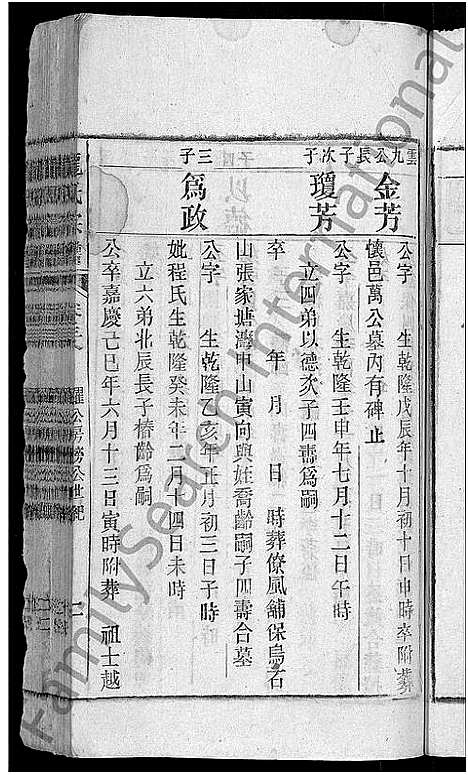 雲九公長子
金芳
公字　生乾隆戊辰年十月初十日申時卒附葬
懷邑萬公墓內有碑止
次子
瓊芳
公字　生乾隆壬申年七月十二日午時
立四弟以德次子四壽爲嗣
卒　年　月　日　時葬僚風舖保烏石
山張家塘灣申山寅向與姪喬齡嗣子四壽合墓
三子
爲政
公字　生乾隆乙亥年正月初三日子時
妣程氏生乾隆癸未年二月十四日未時
立六弟北辰長子椿齡爲嗣
公卒嘉慶己巳年六月十三日寅時附葬　祖士越
公世紀
二
FamilySearch International